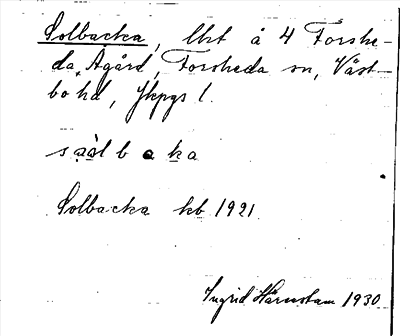 Solbacka, lht å 4 Forshe-
da Ågård, Forsheda sn, Väst-
bo hd, Jkpgs l.
sààlbaka
Solbacka kb 1921.
Ingrid Härenstam 1930